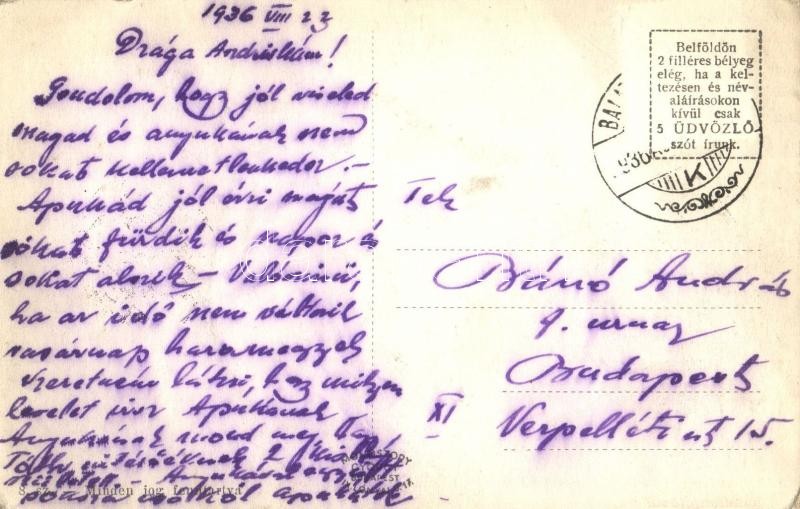 1936 VIII 23
Drága Andriskám!
Gondolom, hogy jól viseled
magad és anyukának nem
sokat kellemetlenkedel. -
Apukád jól érzi magát
sokat fürdik és napoz és
sokat alszik - Valószínű,
ha az idő nem változik
vasárnap hazamegyek
Szeretném látni, hogy milyen
levelet írsz Apukának
Anyukának mond meg
2
Anyukát
csókol apukátok
Belföldön
2 filléres bélyeg
elég, ha a kel-
tezésen és név-
aláírásokon
kívül csak
5 ÜDVÖZLŐ
szót írunk.
BALA
936
K
Tek
Bánó András
I. urnak
Budapest
XI
Verpeléti út 15.
Minden jog fenntartva